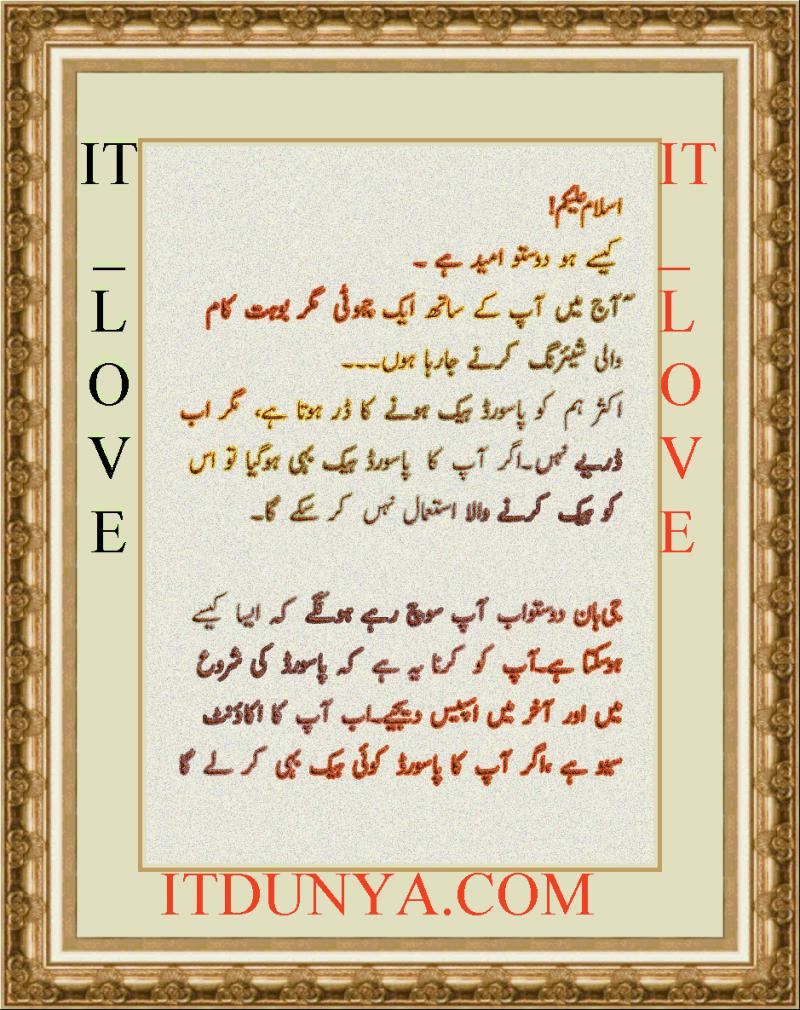 اسلام علیکم!
کیسے ہو دوستو امید ہے ۔
آج میں آپ کے ساتھ ایک چھوٹی مگر بوہت کام
والی شیئرنگ کرنے جارہا ہوں۔۔۔
اکثر ہم کو پاسورڈ ہیک ہونے کا ڈر ہوتا ہے، مگر اب
ڈریے نہں۔اگر آپ کا پاسورڈ ہیک بھی ہوگیا تو اس
کو ہیک کرنے والا استعمال نہں کر سکے گا۔
جی ہان دوستواب آپ سوچ رہے ہونگے کہ ایسا کیسے
ہوسکتا ہے۔آپ کو کرنا یہ ہے کہ پاسورڈ کی شروع
میں اور آخر میں اسپیس دیجیے۔اب آپ کا اکاؤنٹ
سیو ہے ،اگر آپ کا پاسورڈ کوئی ہیک بھی کر لے گا
IT_LOVE
IT_LOVE
ITDUNYA.COM